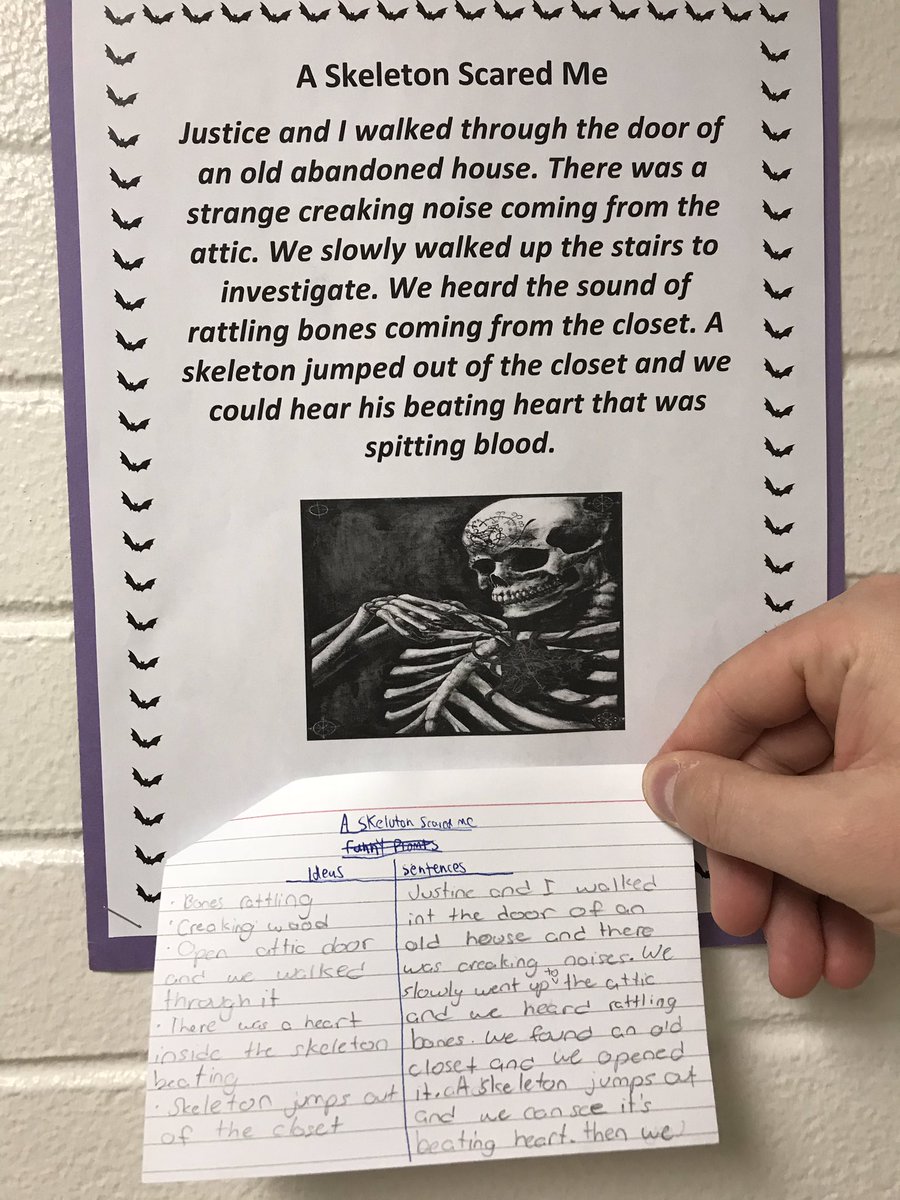 A Skeleton Scared Me
Justice and I walked through the door of
an old abandoned house. There was a
strange creaking noise coming from the
attic. We slowly walked up the stairs to
investigate. We heard the sound of
rattling bones coming from the closet. A
skeleton jumped out of the closet and we
could hear his beating heart that was
spitting blood.
A Skeluton Scared me
Funny Promts
Ideas
· Bones rattling
· Creaking wood
· Open attic door
and we walked
through it
· There was a heart
inside the skeleton
beating
· Skeleton jumps out
of the closet
sentences
Justine and I walked
int the door of an
old house and there
was creaking noises. We
slowly went up to the attic
and we heard rattling
bones. we found an old
closet and we opened
it. A skeleton jumps out
and we can see it's
beating heart. then we